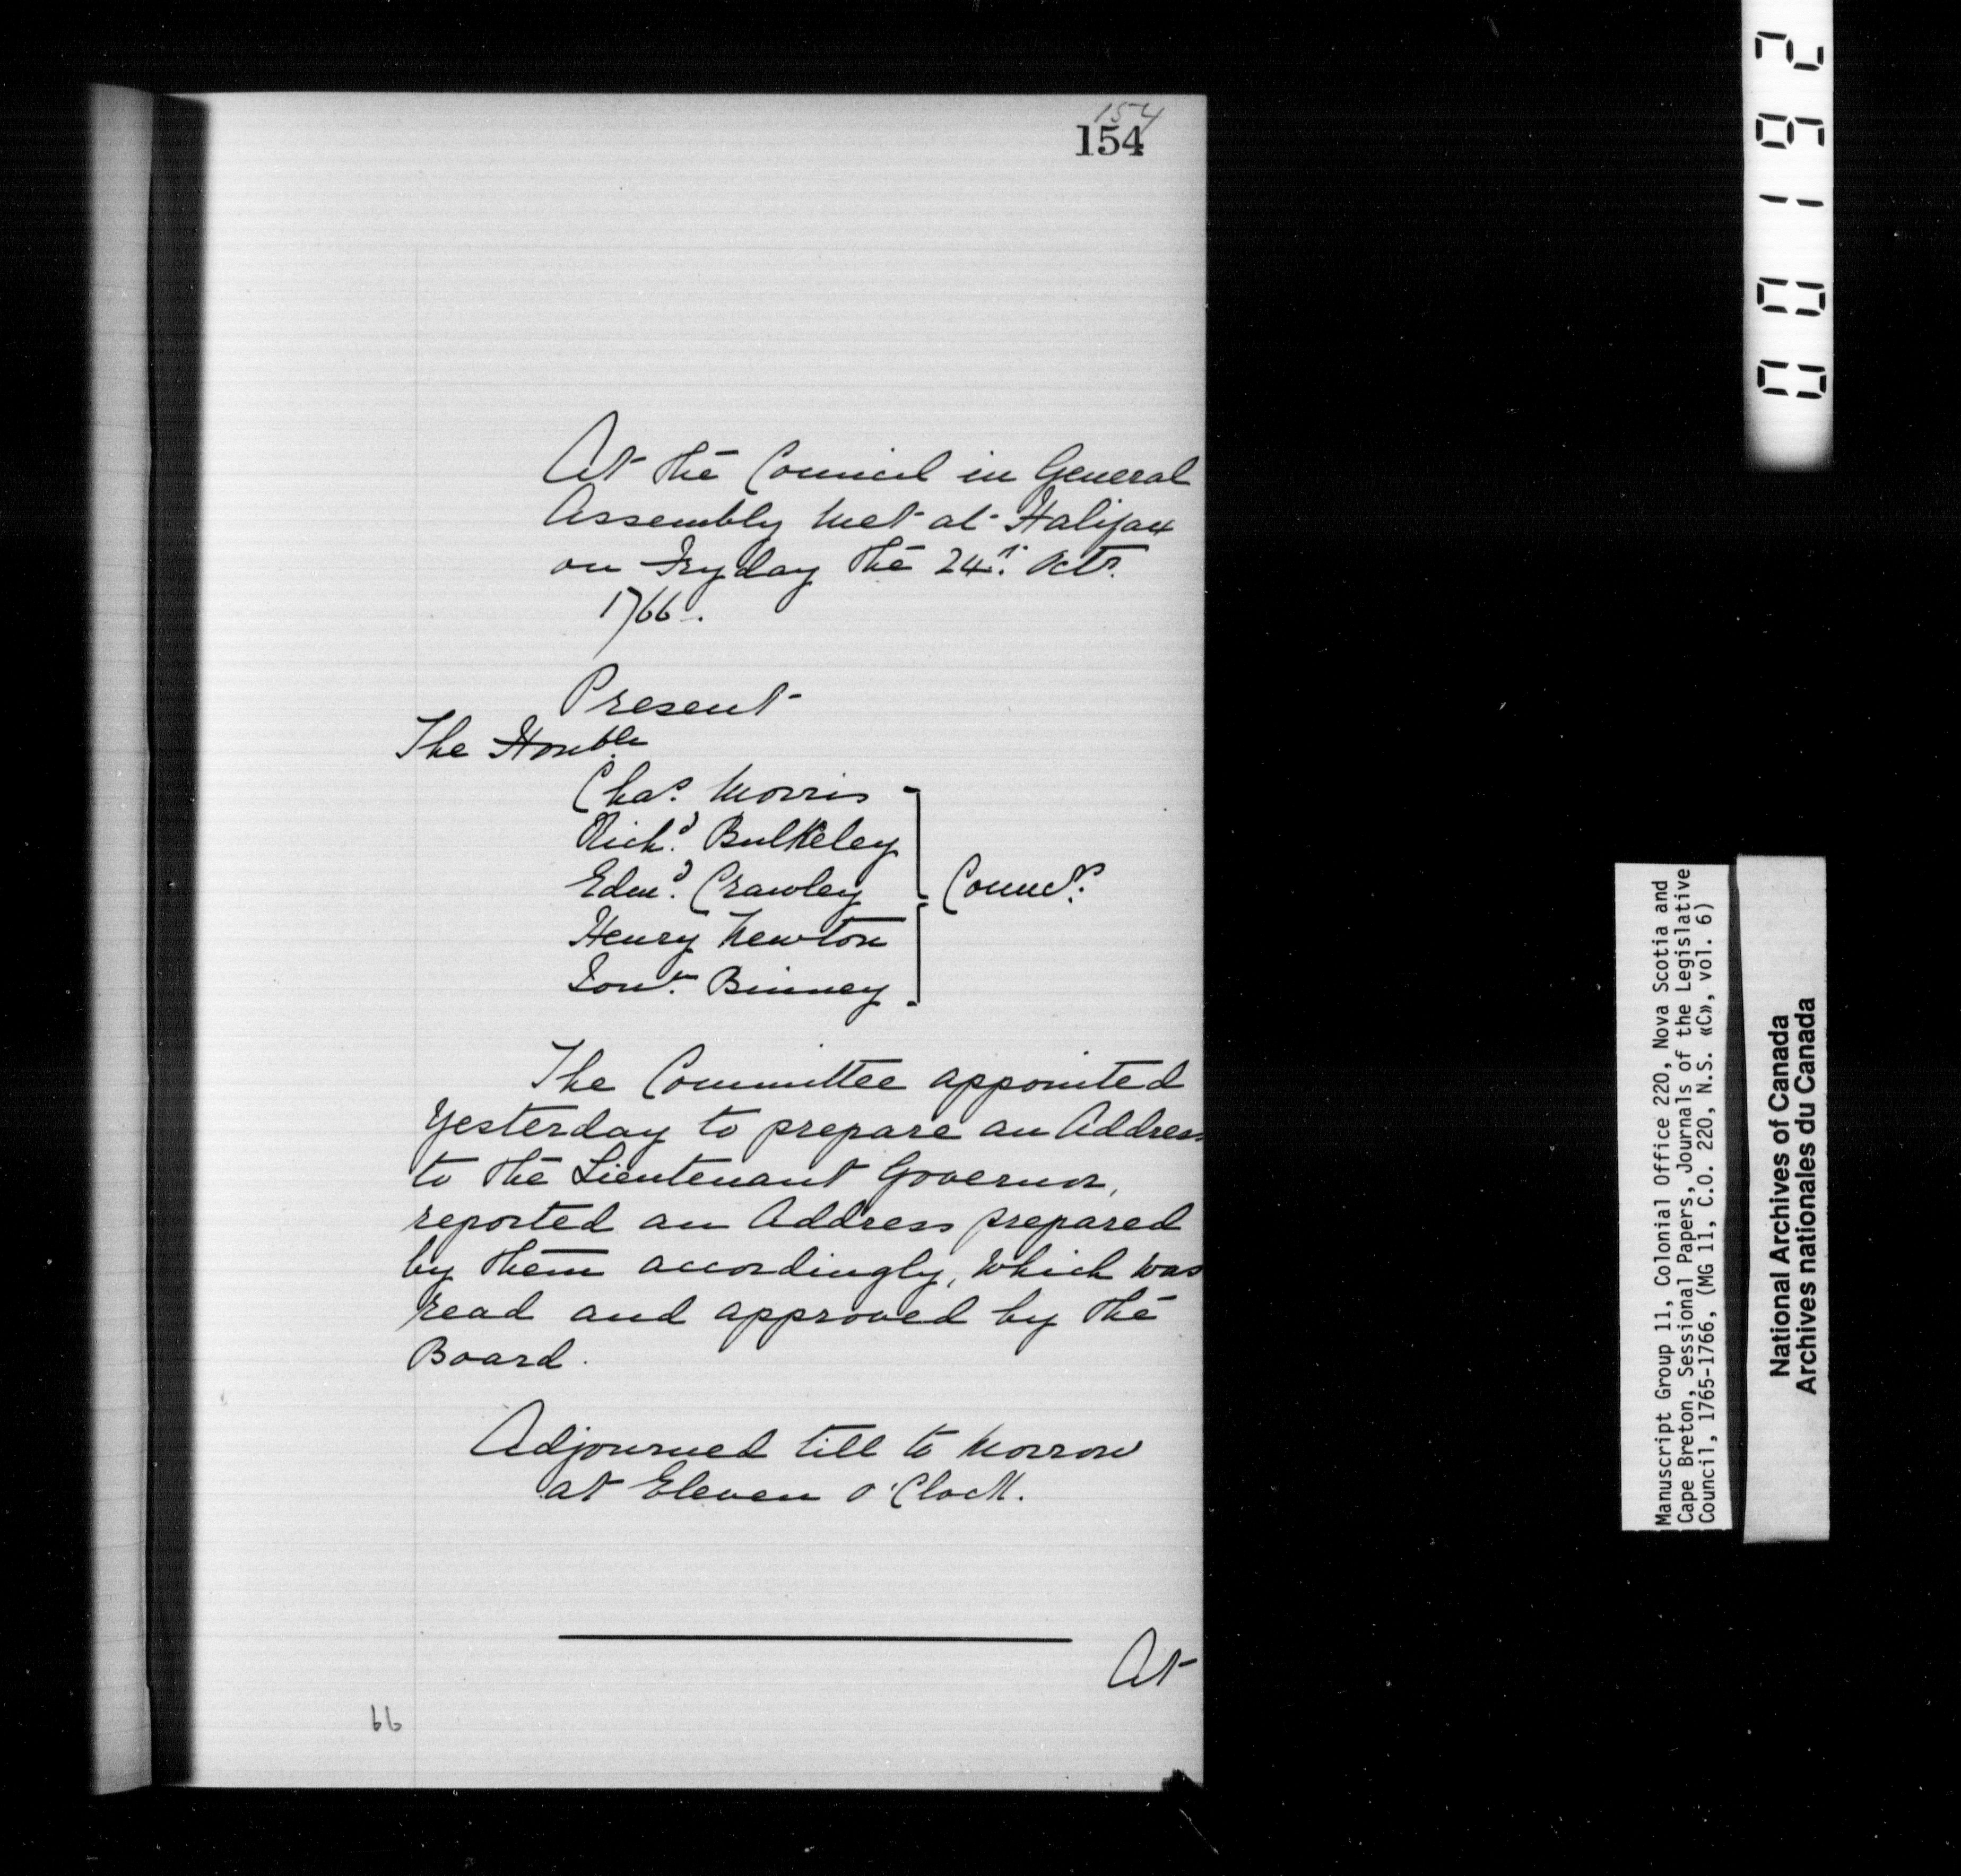 154
154
At the Council in General
Assembly met at Halifax
on Fryday the 24th. Octr.
1766.
Present
The Honble.
Chas. Morris
Richd. Bulkeley
Edmd. Crawley
Henry Newton
Jonn. Binney
Councrs.
The Committee appointed
Yesterday to prepare an Address
to the Lieutenant Governor,
reported an Address prepared
by them accordingly, which was
read and approved by the
Board.
Adjourned till to Morrow
at Eleven o'Clock.
At
66
00192
Manuscript Group 11, Colonial Office 220, Nova Scotia and
Cape Breton, Sessional Papers, Journals of the Legislative
Council, 1765-1766, (MG 11, C.O. 220, N.S. «C», vol. 6)
National Archives of Canada
Archives nationales du Canada